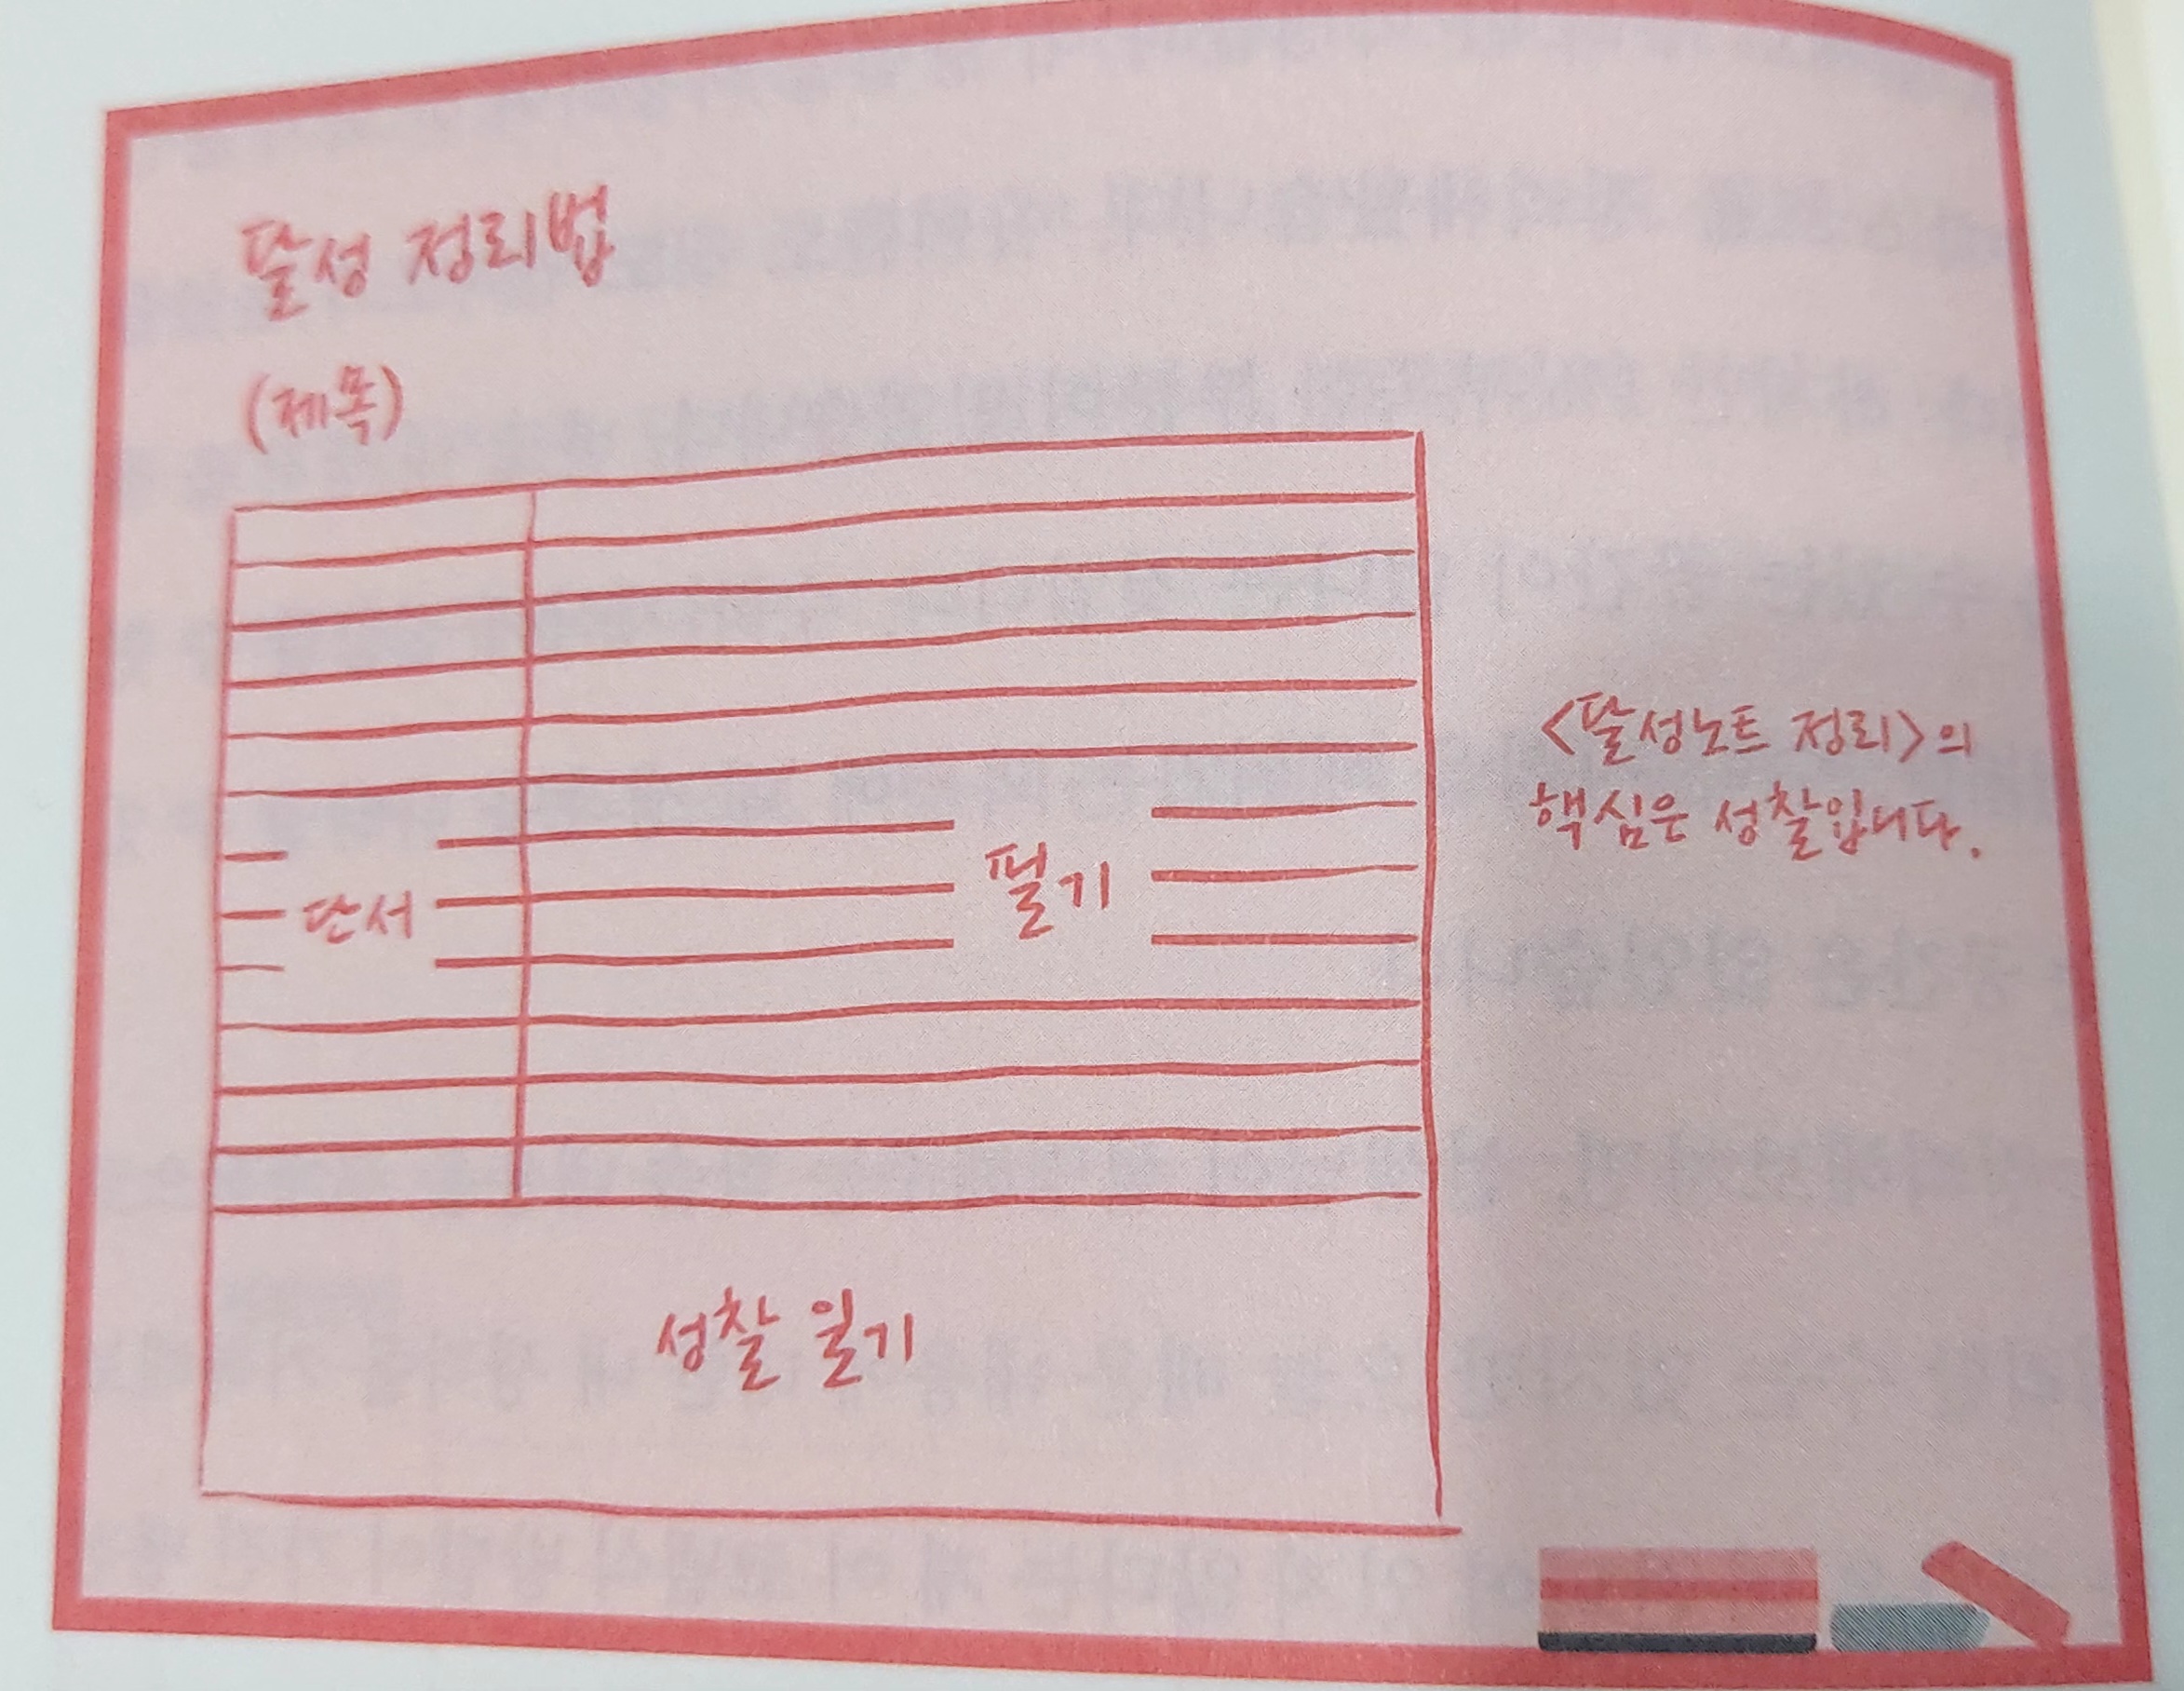 달성 정리법
(제목)
단서
필기
<달성노트 정리>의
핵심은 성찰입니다.
성찰 일기